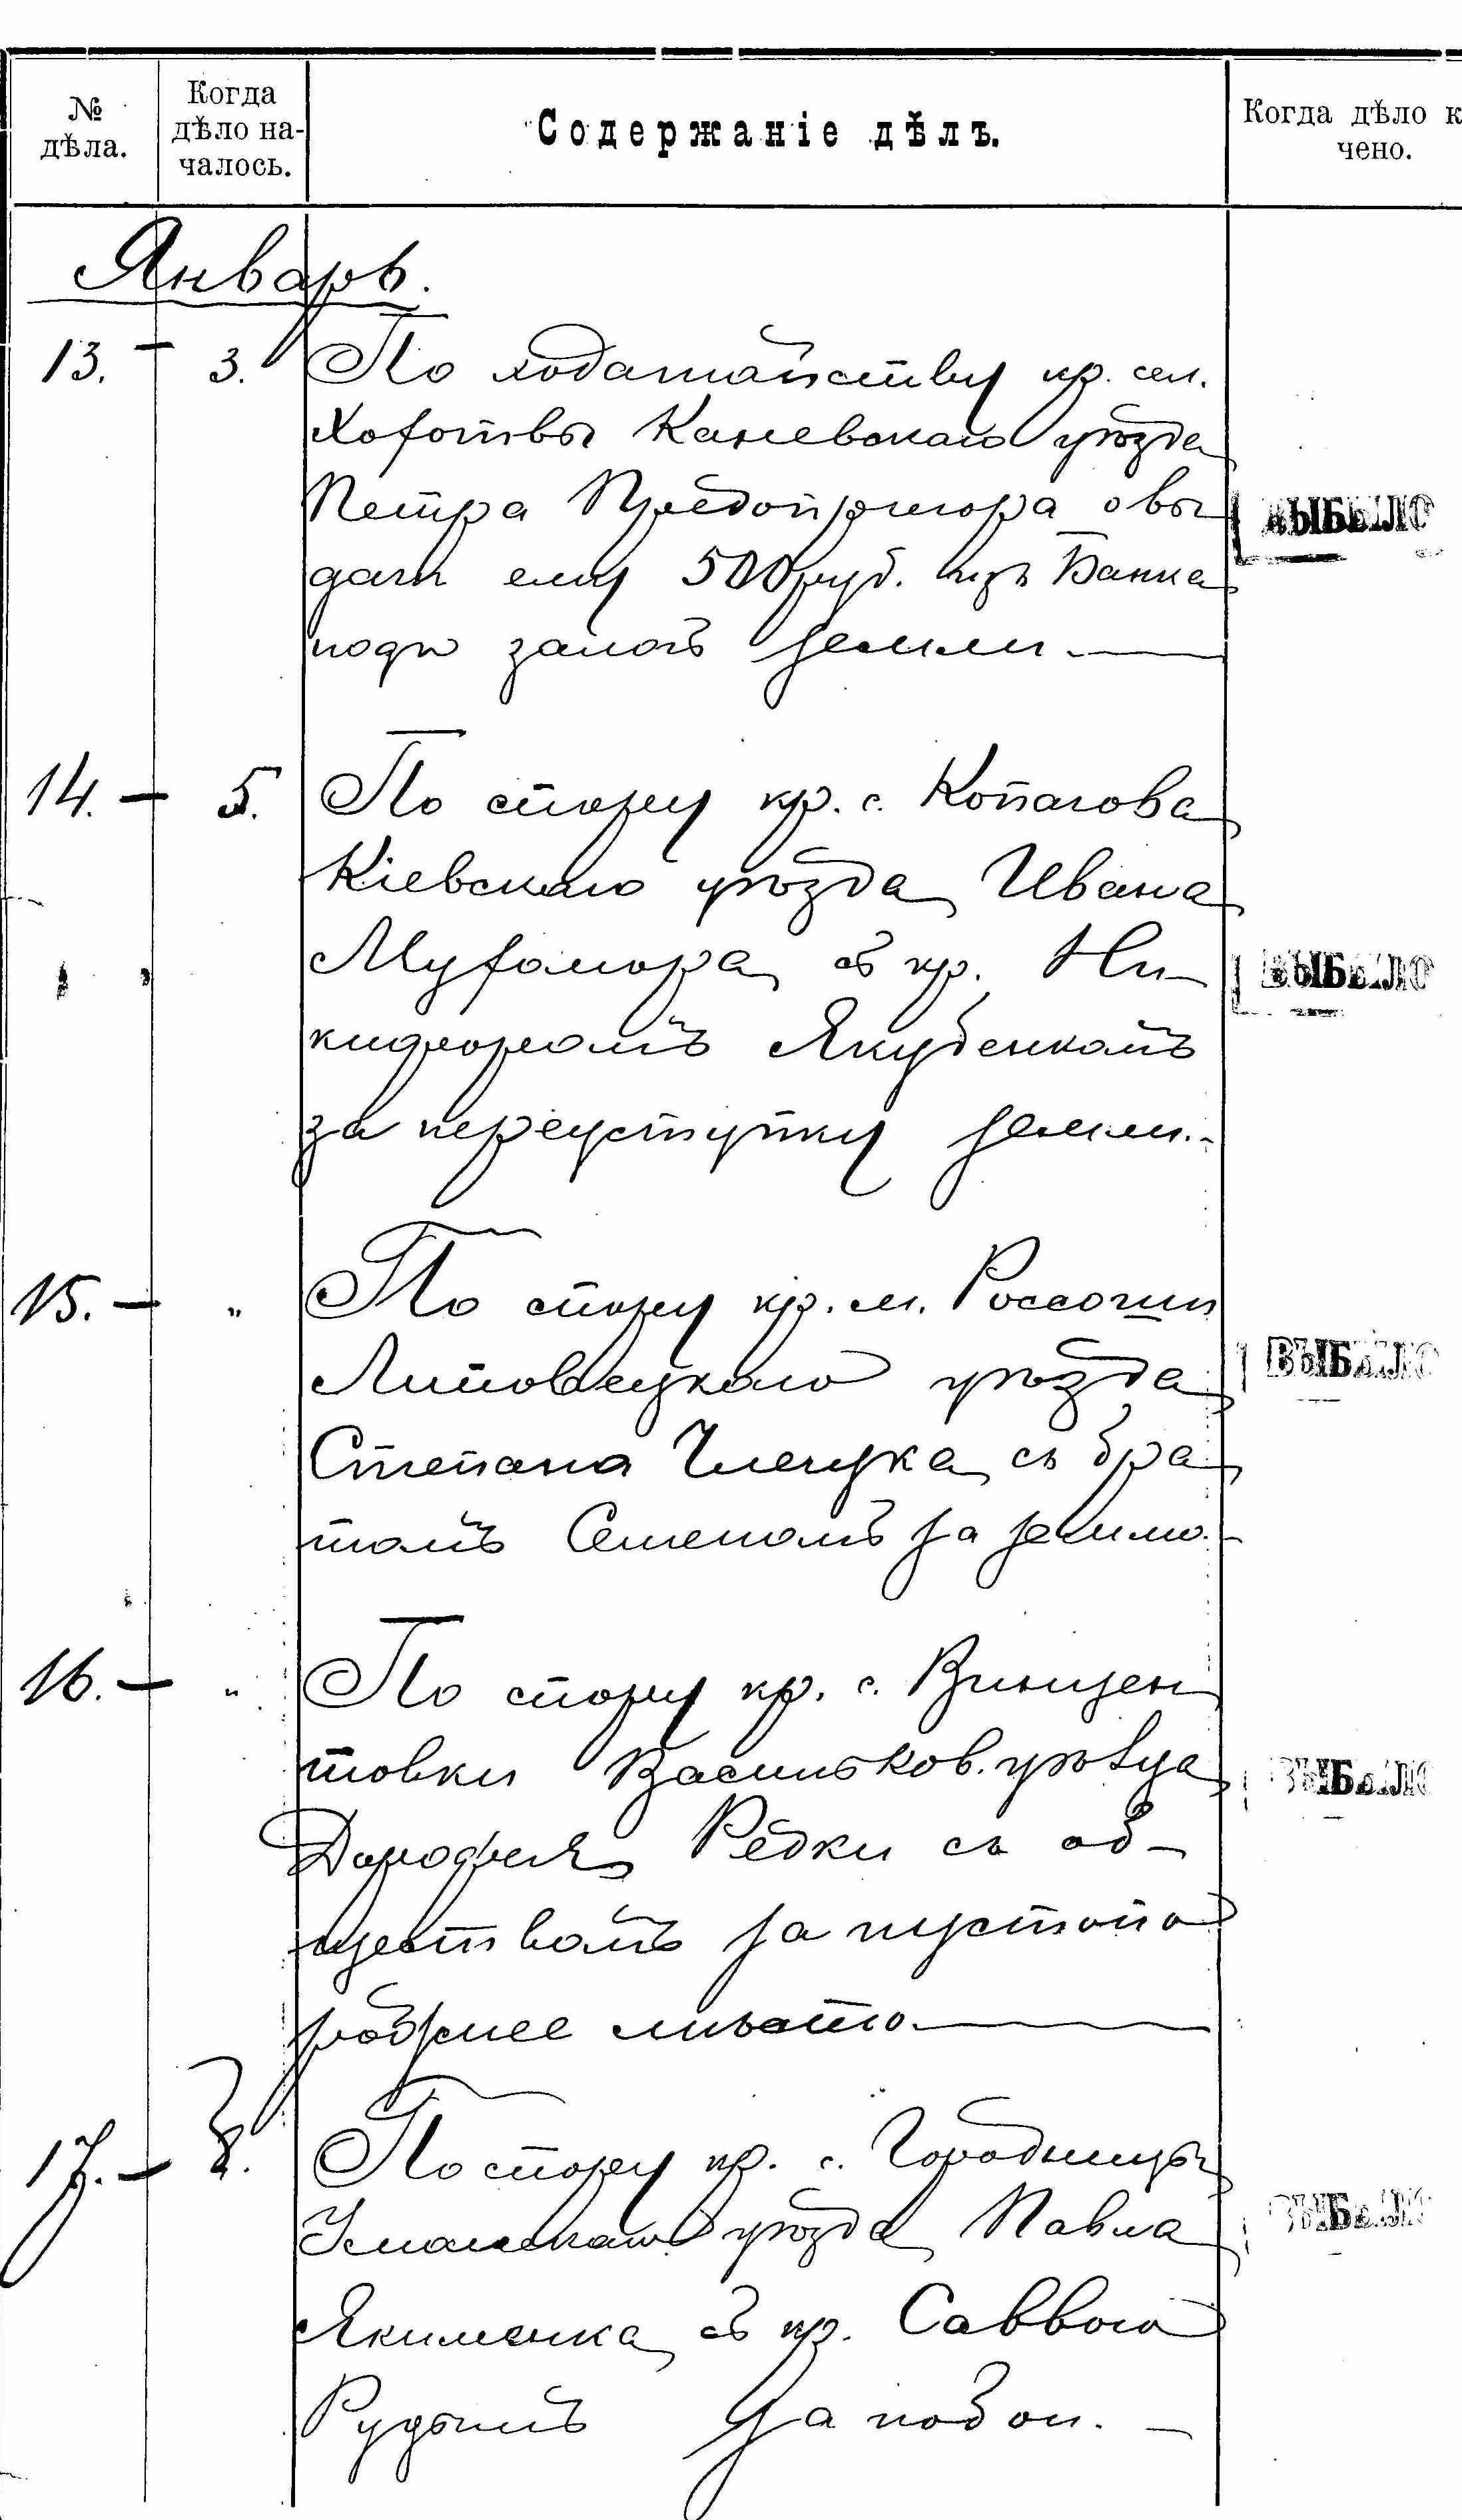 № дѣла.
Когда дѣло на-
чалось.
Содержаніе дѣлъ.
Когда дѣло к
чено.
Январь.
13. – 3. По ходатайству кр. сел.
Каневскаго уѣзда
Петра о вы
дачи ему 500 руб. изъ Банка
ВЫБЫЛО
подъ залогъ земли. —
14. – 5. По спору кр. с. Копачова
Кіевскаго уѣзда Ивана
Мухомора съ кр. Ни-
ВЫБЫЛО
кифоромъ Якубенкомъ
за переуступку земли. -
15. – „ По спору кр. м. Россоши
Липовецкаго уѣзда
ВЫБЫЛО
Степана съ бра
томъ Семеномъ за землю. -
16. – „ По спору кр. с. Винцен
товки Васильков. уѣзда
ВЫБЫЛО
Дорофея Редки съ об-
ществомъ за пустопо
рожнее мѣсто. —
17. – 8. По спору кр. с. Городницы
Уманскаго уѣзда Павла
ВЫБЫЛО
Якименка съ кр. Саввою
Рудымъ за побои. –